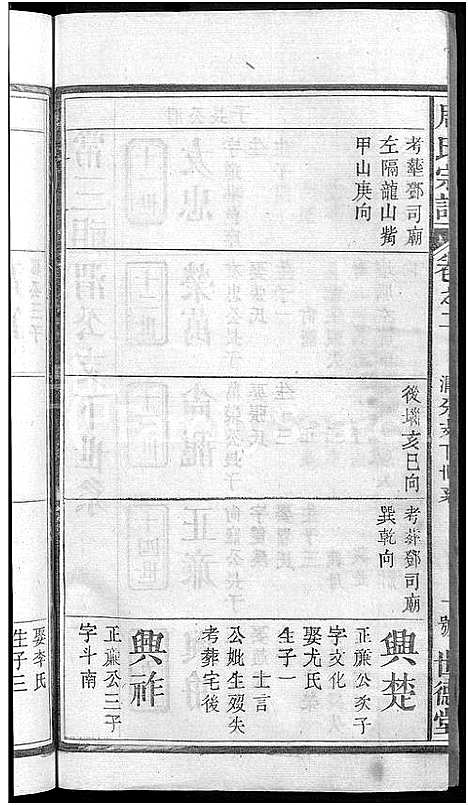 周氏宗譜
卷之二
世德堂
考塟鄧司廟
左隔龍山觜
甲山庚向
後墣亥巳向
考葬鄧司廟
巽乾向
興楚
正廉公次子
字文化
娶尤氏
生子一
士言
公妣生殁失
考葬宅後
興祚
正廉公三子
字斗南
娶李氏
生子三